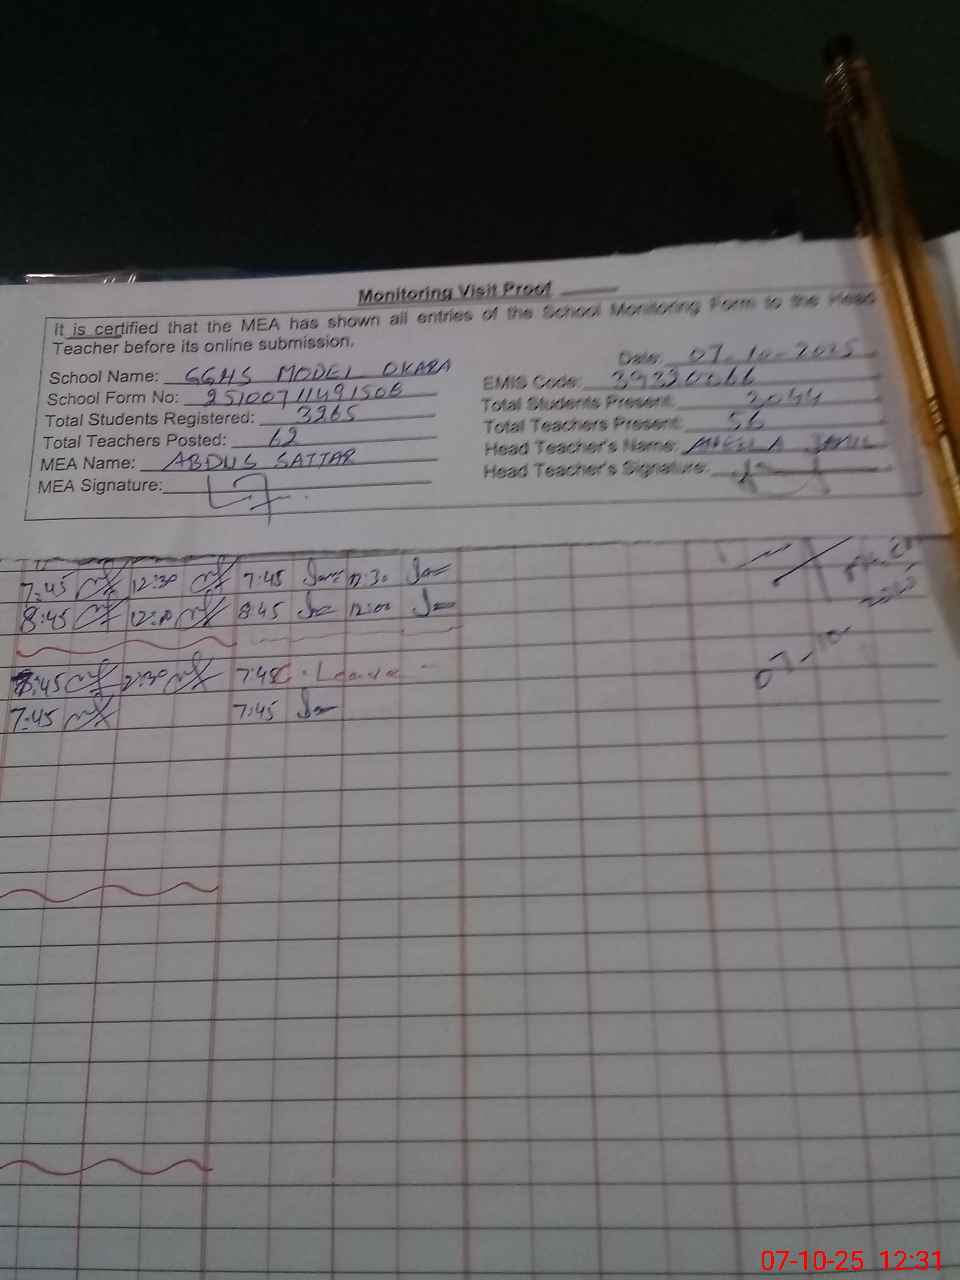 Monitoring Visit Proof
It is certified that the MEA has shown all entries of the School Monitoring Form to the Head
Teacher before its online submission.
Date: 07-10-2025
School Name: GGHS MODEL OKARA
EMIS Code: 39330066
School Form No: 25100711491506
Total Students Present: 2044
Total Students Registered: 3265
Total Teachers Present: 56
Total Teachers Posted: 62
Head Teacher's Name: JAMIL
MEA Name: ABDUS SATTAR
Head Teacher's Signature:
MEA Signature:
7:45 12:30 7:45 12:30
8:45 12:00 8:45 12:00
8:45 2:30 7:45 C. Leave
7:45 7:45
07-10-
07-10-25 12:31